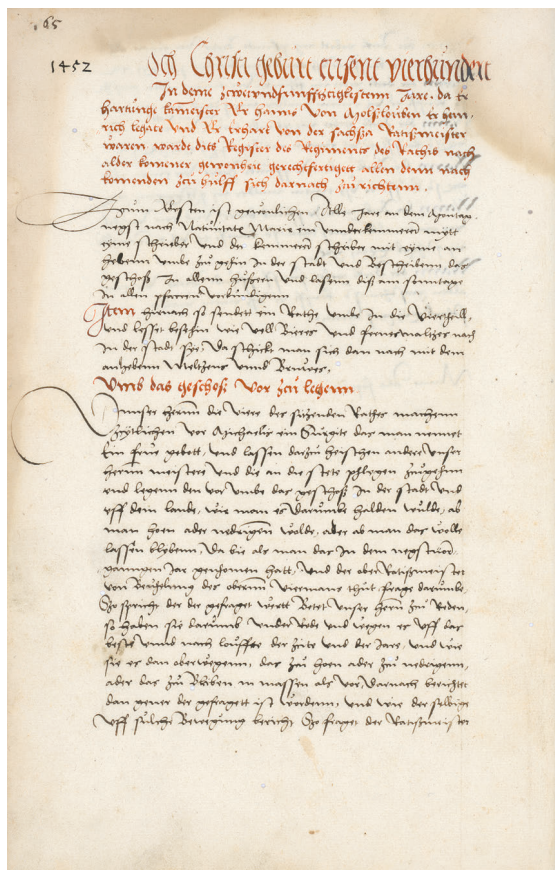 65
1452
Och Christi geburt tusent vierhundert
In deme zweiundfunffczigkestenn Jare. da er
hartunge kameister Er hanns von Molsleuben Er hein,
rich legate Und Er Erhart von der sachsa Ratißmeister
waren. warde diß Register des Regiments des Rathis nach
alder komener gewonheit gerechtfertiget allen denn nach
komenden zcu hulff sich darnach zcu richtenn.
Zcum Ersten ist gewonlichen Alle Jare an dem Montage
negst nach Nativitate Marie ein underkemmerer mytt
eyme schreiber und der kemmerer schreiber mit eyme an
hebenn umbe zcu gehin In der stadt und Bescheibenn das
geschoß In allenn hußern und lasenn diß am sonntage
in allen pfarren vorkundigenn
Item hirnach so sendett ein Rathe umbe In die Vierteill,
und lesset besehin wie vell Bieres und sernewaltzes noch
In der stadt sye, Da schicke man sich dan nach mit dem
anhebenn Meltzens unnd Bruwes,
Umb das geschoß vor zcu legenn
Unnser herrnn die viere des sitzenden Rathes machenn
zcytlichen vor Michaelis ein Burgite das man nennet
Ein frue gebott, und lassen darzu heischen andere unser
herrnn meistere und die an die stete pflegen zcugehin
und legenn den vor umbe das geschoß In der stadt und
uff dem lande, wie man es darumbe halden wulde, ab
man hoen ader nedrigenn wolde, ader ab man das wolle
lassen blybenn, Da bie als man das In dem negst vor
gangen Jar genohomen hatt, und der ober Ratißmeister
von Bevhelung des oberrnn viermans thut frage darumbe
So spricht der der gefraget wirtt Betet unser hern zcu reden,
so haben sie darumb underrede und wegen es uff das
beste unnd nach louffte der zcite und der Jare, und wie
sie es dan oberwegenn, das zcu hoen ader zcu nedrigenn,
ader das zcu bliben in massen als vor, Darnach berichtet
dan gener der gefragett ist wordenn, und wie der selbige
uff sulche Bewegung bericht, So fraget der Ratißmeister